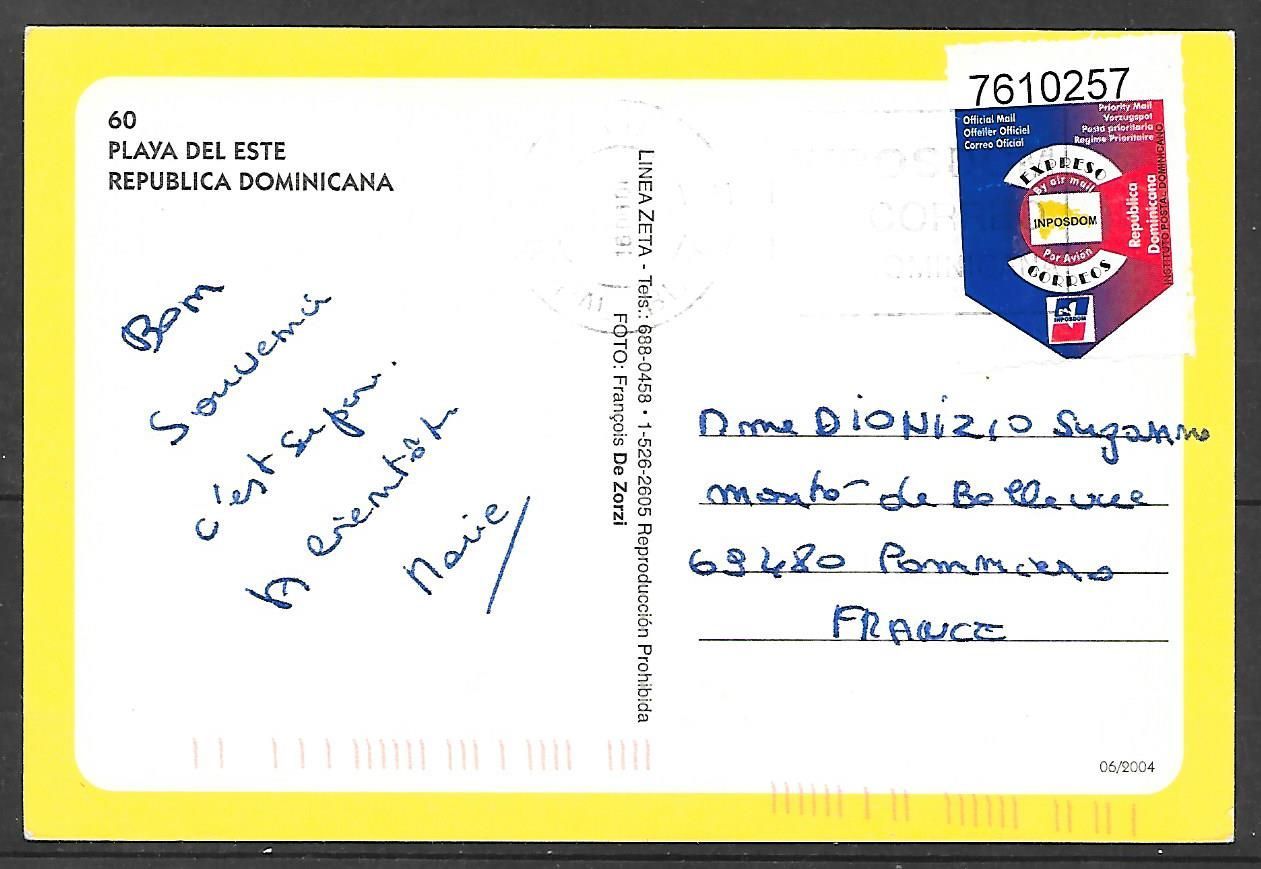 60
PLAYA DEL ESTE
REPUBLICA DOMINICANA
Bon
Souvenir
c'est super.
A bientôt
Marie
LINEA ZETA - Tels.: 688-0458 • 1-526-2605 Reproducción Prohibida
FOTO: François De Zorzi
7610257
Official Mail
Offeller Officiel
Correo Oficial
Priority Mail
Vorzugspot
Posta prioritaria
Regime Prioritaire
EXPRESO
By air mail
INPOSDOM
Par Avión
CORREOS
República
Dominicana
INSTITUTO POSTAL DOMINICANO
INPOSDOM
Mme DIONIZIO Suzanne
montée de Bellevue
69480 Pommiers
FRANCE
06/2004